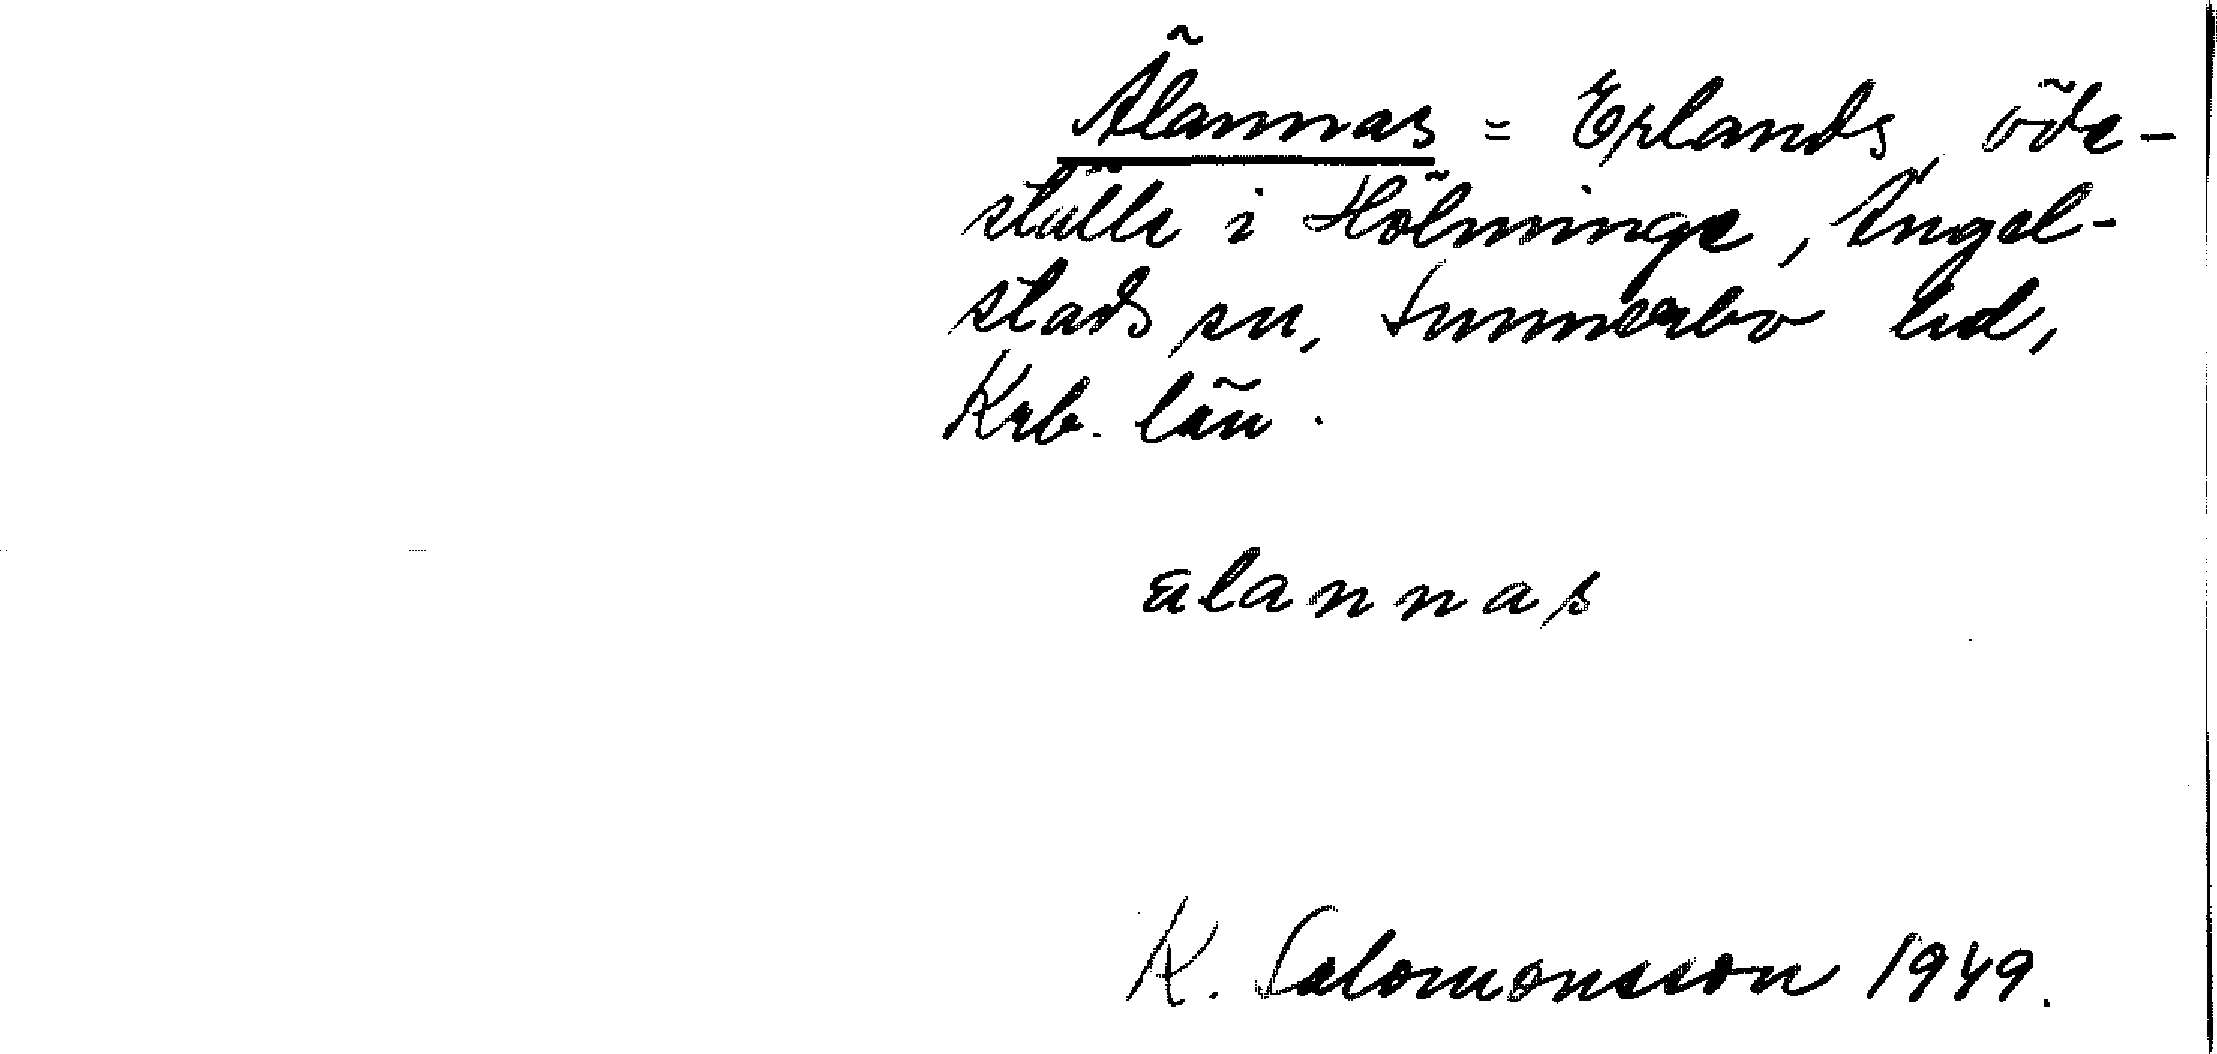 Älannas = Erlands, öde-
ställe i Hölminge, Ängel-
stads sn, Sunnerbo hd,
Krb. län.
älannas
K. Salomonsson 1949.